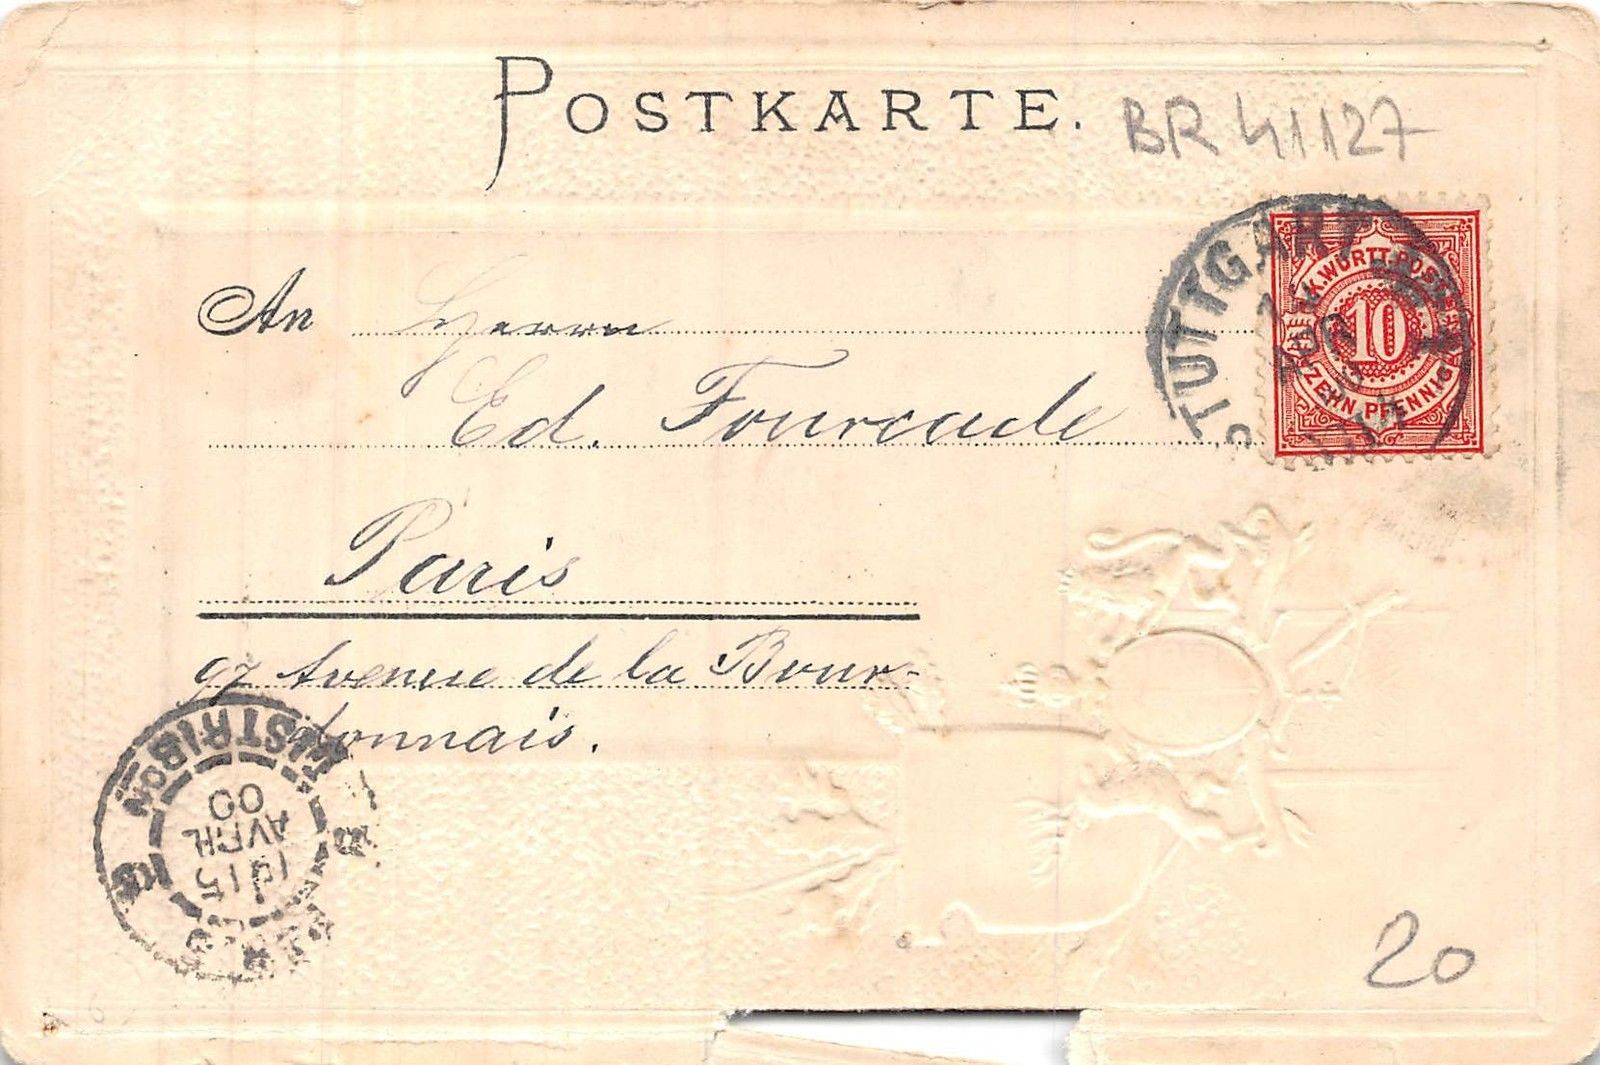 POSTKARTE.
BR 41127
STUTTGART
K.WÜRTT.POST
10
ZEHN PFENNIG
An Herrn
Ed. Fourcade
Paris
97 Avenue de la Bour-
donnais.
DISTRIBON
15
AVRIL
00
20